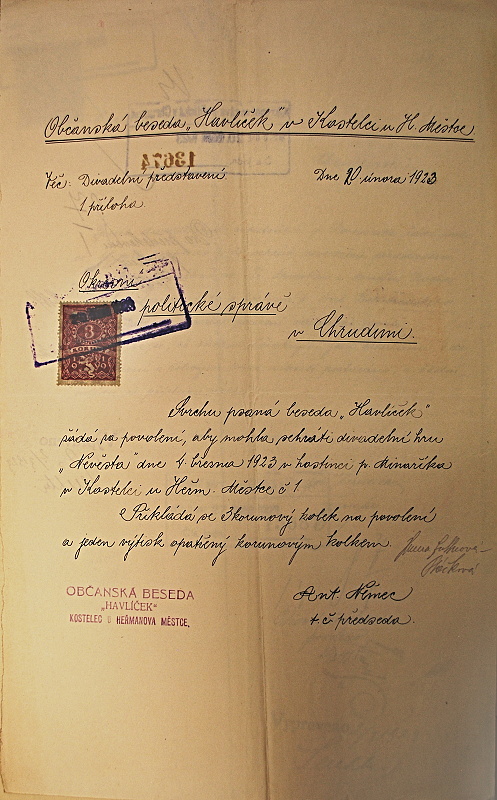 Občanská beseda „Havlíček" v Kostelci u H. Městce
13674
Věc: Divadelní představení
Dne 20 února 1923
1 příloha.
Okresní
politické správě
v Chrudimi.
3
Svrchu psaná beseda „Havlíček"
žádá za povolení, aby mohla sehráti divadelní hru
„Nevěsta" dne 4. března 1923 v hostinci p. Minaříka
v Kostelci u Heřm. Městce č 1
Přikládá se 3 korunový kolek na povolení
a jeden výtisk opatřený korunovým kolkem.
OBČANSKÁ BESEDA
„HAVLÍČEK"
KOSTELEC U HEŘMANOVA MĚSTCE.
Ant. Němec
t. č. předseda.